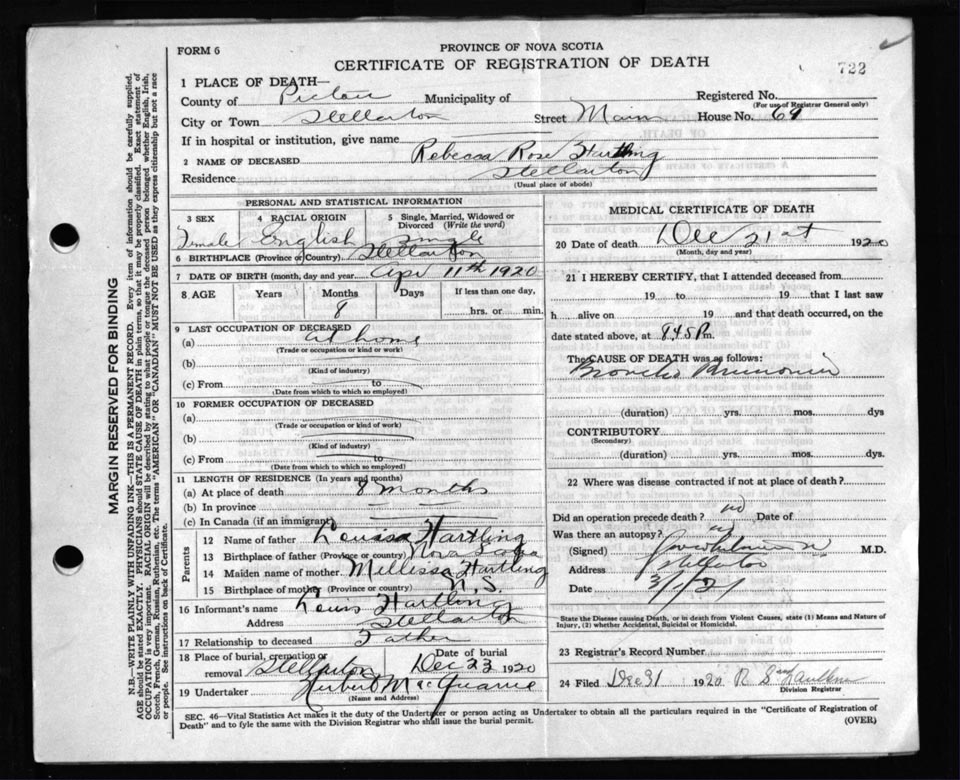 FORM 6
PROVINCE OF NOVA SCOTIA
CERTIFICATE OF REGISTRATION OF DEATH
722
1 PLACE OF DEATH—
County of Pictou Municipality of
Registered No.
(For use of Registrar General only)
City or Town Stellarton Street Main House No. 69
If in hospital or institution, give name
2 NAME OF DECEASED Rebecca Rose Hartling
Residence Stellarton
(Usual place of abode)
PERSONAL AND STATISTICAL INFORMATION
3 SEX 4 RACIAL ORIGIN 5 Single, Married, Widowed or Divorced (Write the word)
Female English Single
6 BIRTHPLACE (Province or Country) Stellarton
7 DATE OF BIRTH (month, day and year) Apr 11th 1920
8 AGE Years Months Days If less than one day,
8 hrs. or min.
9 LAST OCCUPATION OF DECEASED
(a) at home
(Trade or occupation or kind or work)
(b)
(Kind of industry)
(c) From to
(Date from which to which so employed)
10 FORMER OCCUPATION OF DECEASED
(a)
(Trade or occupation or kind of work)
(b)
(Kind of industry)
(c) From to
(Date from which to which so employed)
11 LENGTH OF RESIDENCE (In years and months)
(a) At place of death 8 months
(b) In province
(c) In Canada (if an immigrant)
Parents
12 Name of father Hartling
13 Birthplace of father (Province or country) Nova Scotia
14 Maiden name of mother Mellissa Hartling
15 Birthplace of mother (Province or country) N. S.
16 Informant's name Louis Hartling
Address Stellarton
17 Relationship to deceased Father
18 Place of burial, cremation or removal Stellarton Date of burial Dec 23 1920
19 Undertaker Herbert MacQuarrie
(Name and Address)
MEDICAL CERTIFICATE OF DEATH
20 Date of death Dec 21st 1920
(Month, day and year)
21 I HEREBY CERTIFY, that I attended deceased from
19 to 19 that I last saw
h alive on 19 and that death occurred, on
date stated above, at 8.45 P m.
The CAUSE OF DEATH was as follows:
Broncho Pneumonia
(duration) yrs. mos. dys
CONTRIBUTORY
(Secondary)
(duration) yrs. mos. dys.
22 Where was disease contracted if not at place of death?
Did an operation precede death? no Date of
Was there an autopsy? no
(Signed) M.D.
Address Stellarton
Date
State the Disease causing Death, or in death from Violent Causes, state (1) Means and Nature of
Injury, (2) whether Accidental, Suicidal or Homicidal.
23 Registrar's Record Number
24 Filed Dec 31 1920
Division Registrar
SEC. 46—Vital Statistics Act makes it the duty of the Undertaker or person acting as Undertaker to obtain all the particulars required in the "Certificate of Registration of
Death" and to fyle the same with the Division Registrar who shall issue the burial permit.
(OVER)
MARGIN RESERVED FOR BINDING
N.B.—WRITE PLAINLY WITH UNFADING INK—THIS IS A PERMANENT RECORD. Every item of information should be carefully supplied.
AGE should be stated EXACTLY. PHYSICIANS should STATE CAUSE OF DEATH in plain terms, so that it may be properly classified. Exact statement of
OCCUPATION is very important. RACIAL ORIGIN will be described by stating to what people or tongue the deceased person belonged whether English, Irish,
Scotch, French, German, Russian, Ruthenian, etc. The terms "AMERICAN" OR "CANADIAN" MUST NOT BE USED as they express citizenship but not a race
or people. See instructions on back of Certificate.